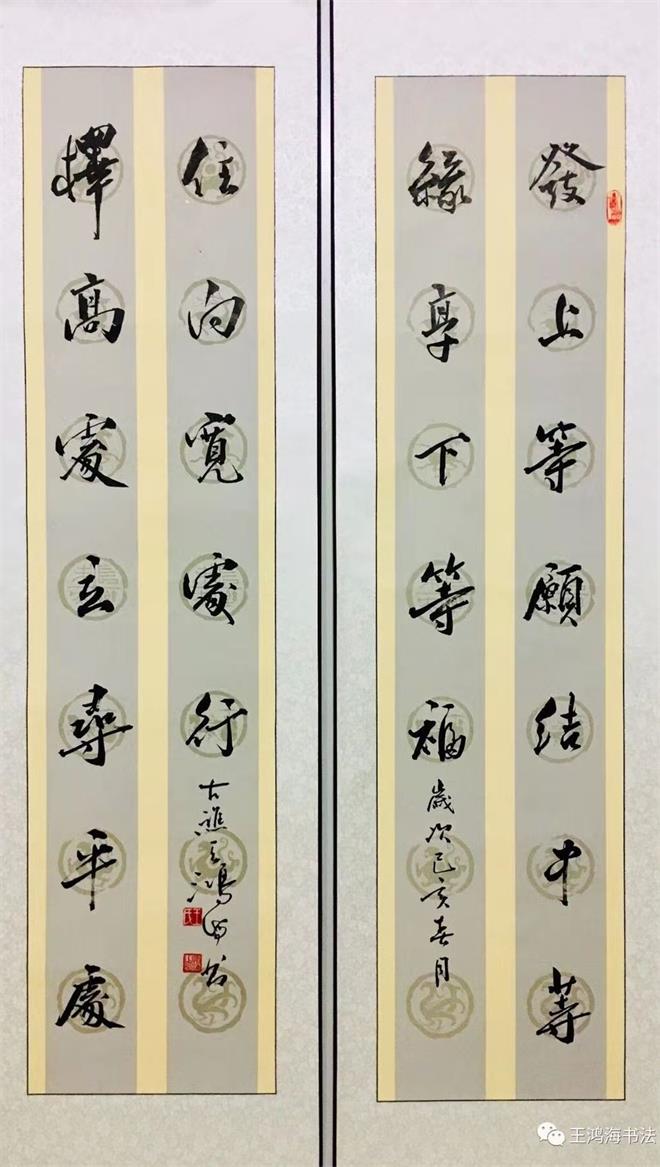 發上等願結中等
緣享下等福
歲次己亥春月
擇高處立尋平處
住向寬處行
古譙王鴻海書
王鸿海书法